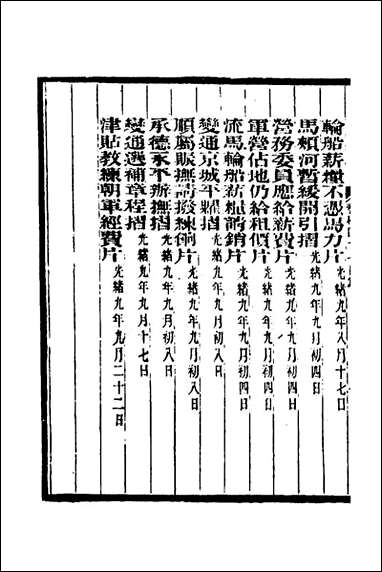 輪船薪糧不憑馬力片 光緒九年八月十七日
馬頰河暫緩開引摺 光緒九年九月初四日
營務委員應給薪費片 光緒九年九月初四日
軍營佔地仍給租價片 光緒九年九月初四日
馬輪船薪糧請銷片 光緒九年九月初四日
變通京城平糶摺 光緒九年九月初八日
順屬賑撫請撥練餉片 光緒九年九月初八日
承德永平辦撫摺 光緒九年九月初八日
變通選補章程摺 光緒九年九月十七日
津貼教練朝軍經費片 光緒九年九月二十二日